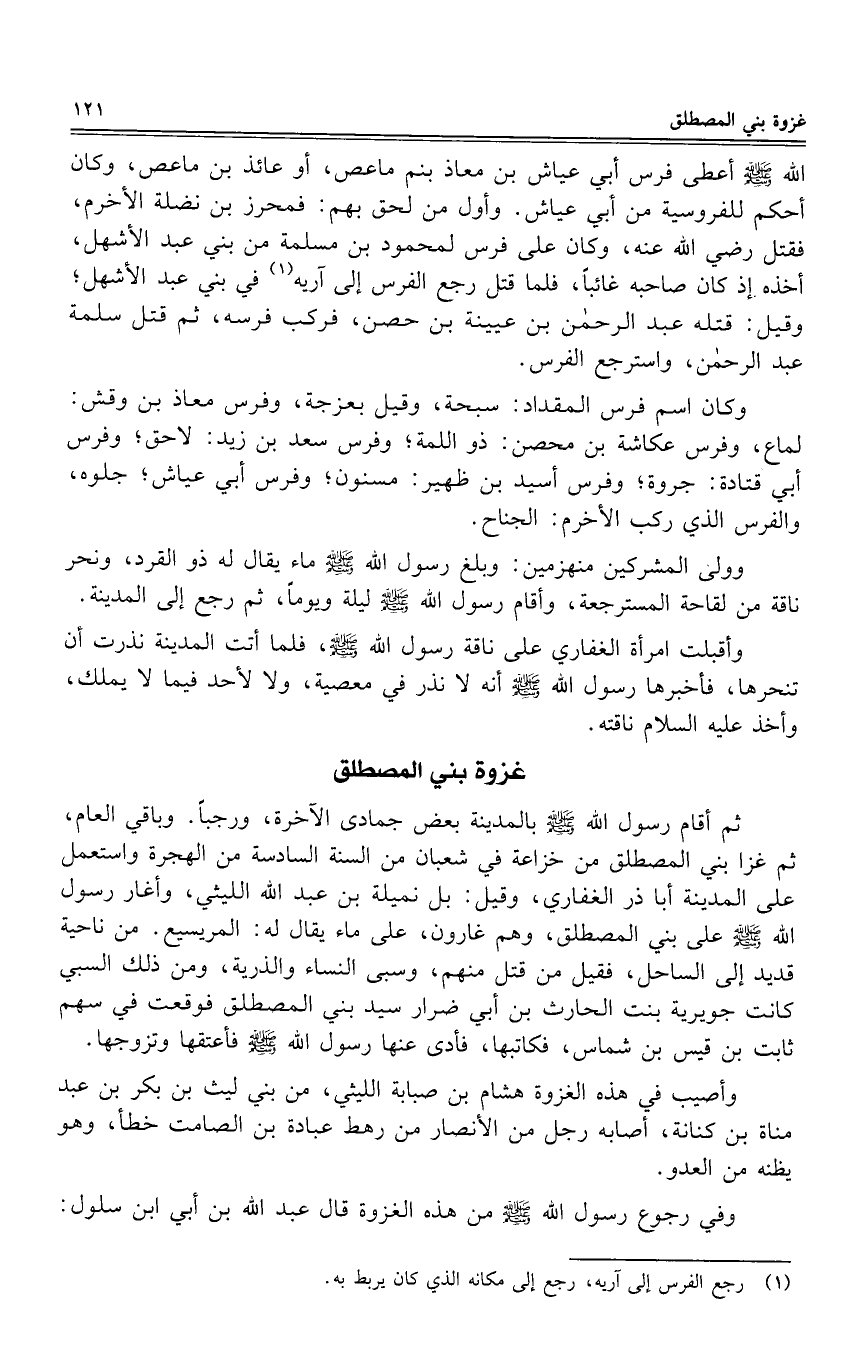 غزوة بني المصطلق ١٢١
الله ﷺ أعطى فرس أبي عياش بن معاذ بنم ماعص، أو عائذ بن ماعص، وكان
أحكم للفروسية من أبي عياش. وأول من لحق بهم: فمحرز بن نضلة الأخرم،
فقتل رضي الله عنه، وكان على فرس لمحمود بن مسلمة من بني عبد الأشهل،
أخذه إذ كان صاحبه غائباً، فلما قتل رجع الفرس إلى آريه(١) في بني عبد الأشهل؛
وقيل: قتله عبد الرحمٰن بن عيينة بن حصن، فركب فرسه، ثم قتل سلمة
عبد الرحمٰن، واسترجع الفرس.
وكان اسم فرس المقداد: سبحة، وقيل بعزجة، وفرس معاذ بن وقش:
لماع، وفرس عكاشة بن محصن: ذو اللمة؛ وفرس سعد بن زيد: لاحق؛ وفرس
أبي قتادة: جروة؛ وفرس أسيد بن ظهير: مسنون؛ وفرس أبي عياش؛ جلوه،
والفرس الذي ركب الأخرم: الجناح.
وولى المشركين منهزمين: وبلغ رسول الله ﷺ ماء يقال له ذو القرد، ونحر
ناقة من لقاحة المسترجعة، وأقام رسول الله ﷺ ليلة ويوماً، ثم رجع إلى المدينة.
وأقبلت امرأة الغفاري على ناقة رسول الله ﷺ، فلما أتت المدينة نذرت أن
تنحرها، فأخبرها رسول الله ﷺ أنه لا نذر في معصية، ولا لأحد فيما لا يملك،
وأخذ عليه السلام ناقته.
غزوة بني المصطلق
ثم أقام رسول الله ﷺ بالمدينة بعض جمادى الآخرة، ورجباً. وباقي العام،
ثم غزا بني المصطلق من خزاعة في شعبان من السنة السادسة من الهجرة واستعمل
على المدينة أبا ذر الغفاري، وقيل: بل نميلة بن عبد الله الليثي، وأغار رسول
الله ﷺ على بني المصطلق، وهم غارون، على ماء يقال له: المريسيع. من ناحية
قديد إلى الساحل، فقيل من قتل منهم، وسبى النساء والذرية، ومن ذلك السبي
كانت جويرية بنت الحارث بن أبي ضرار سيد بني المصطلق فوقعت في سهم
ثابت بن قيس بن شماس، فكاتبها، فأدى عنها رسول الله ﷺ فأعتقها وتزوجها.
وأصيب في هذه الغزوة هشام بن صبابة الليثي، من بني ليث بن بكر بن عبد
مناة بن كنانة، أصابه رجل من الأنصار من رهط عبادة بن الصامت خطأ، وهو
يظنه من العدو.
وفي رجوع رسول الله ﷺ من هذه الغزوة قال عبد الله بن أبي ابن سلول:
(١) رجع الفرس إلى آريه، رجع إلى مكانه الذي كان يربط به.